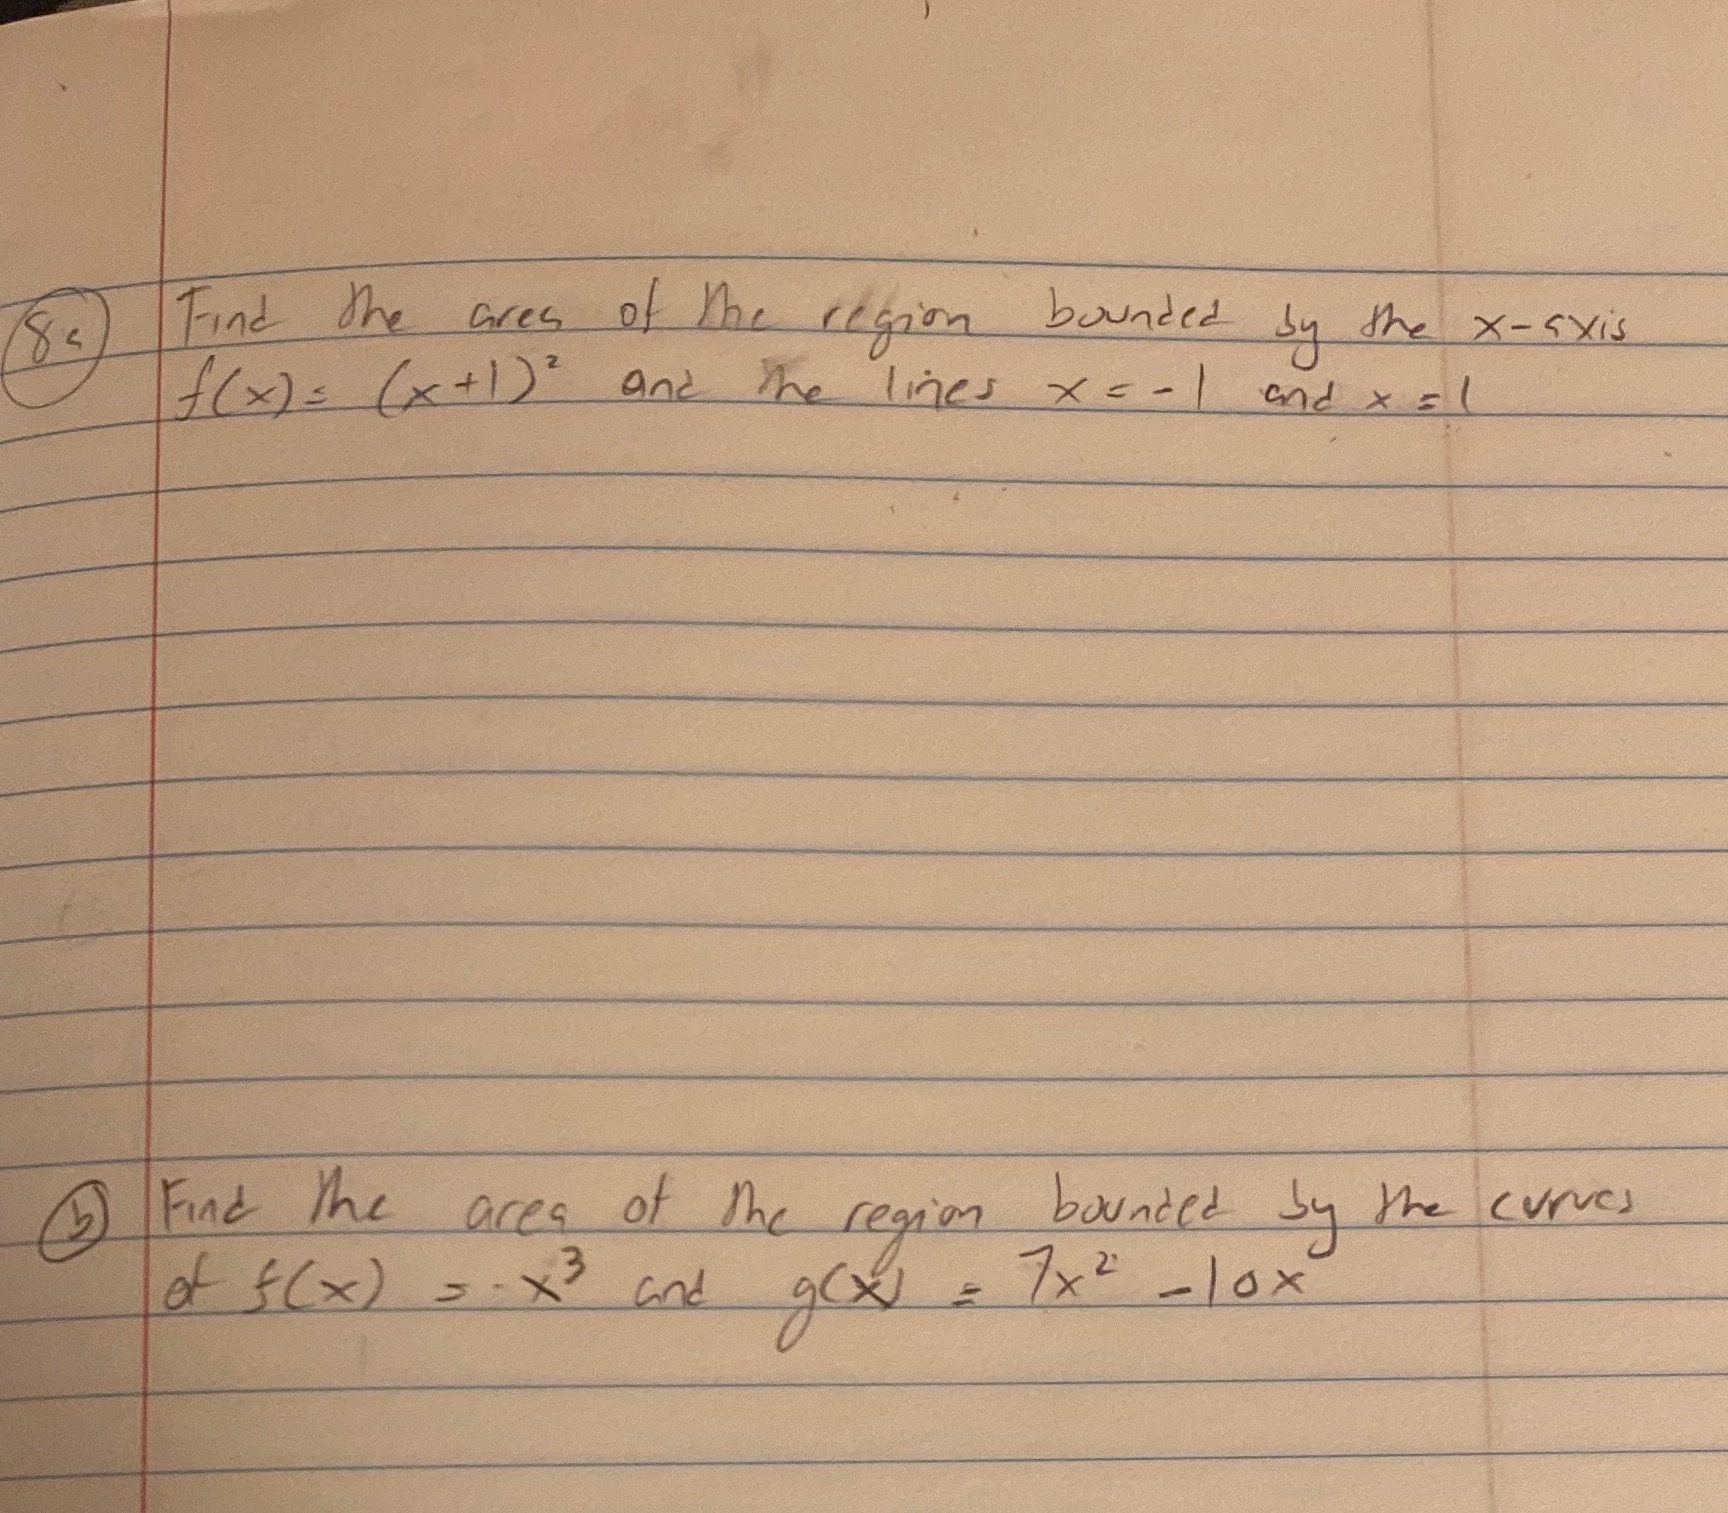 8a Find the area of the region bounded by the x-axis
f(x) = (x+1)² and the lines x = -1 and x = 1
b Find the area of the region bounded by the curves
of f(x) = -x³ and g(x) = 7x² - 10x